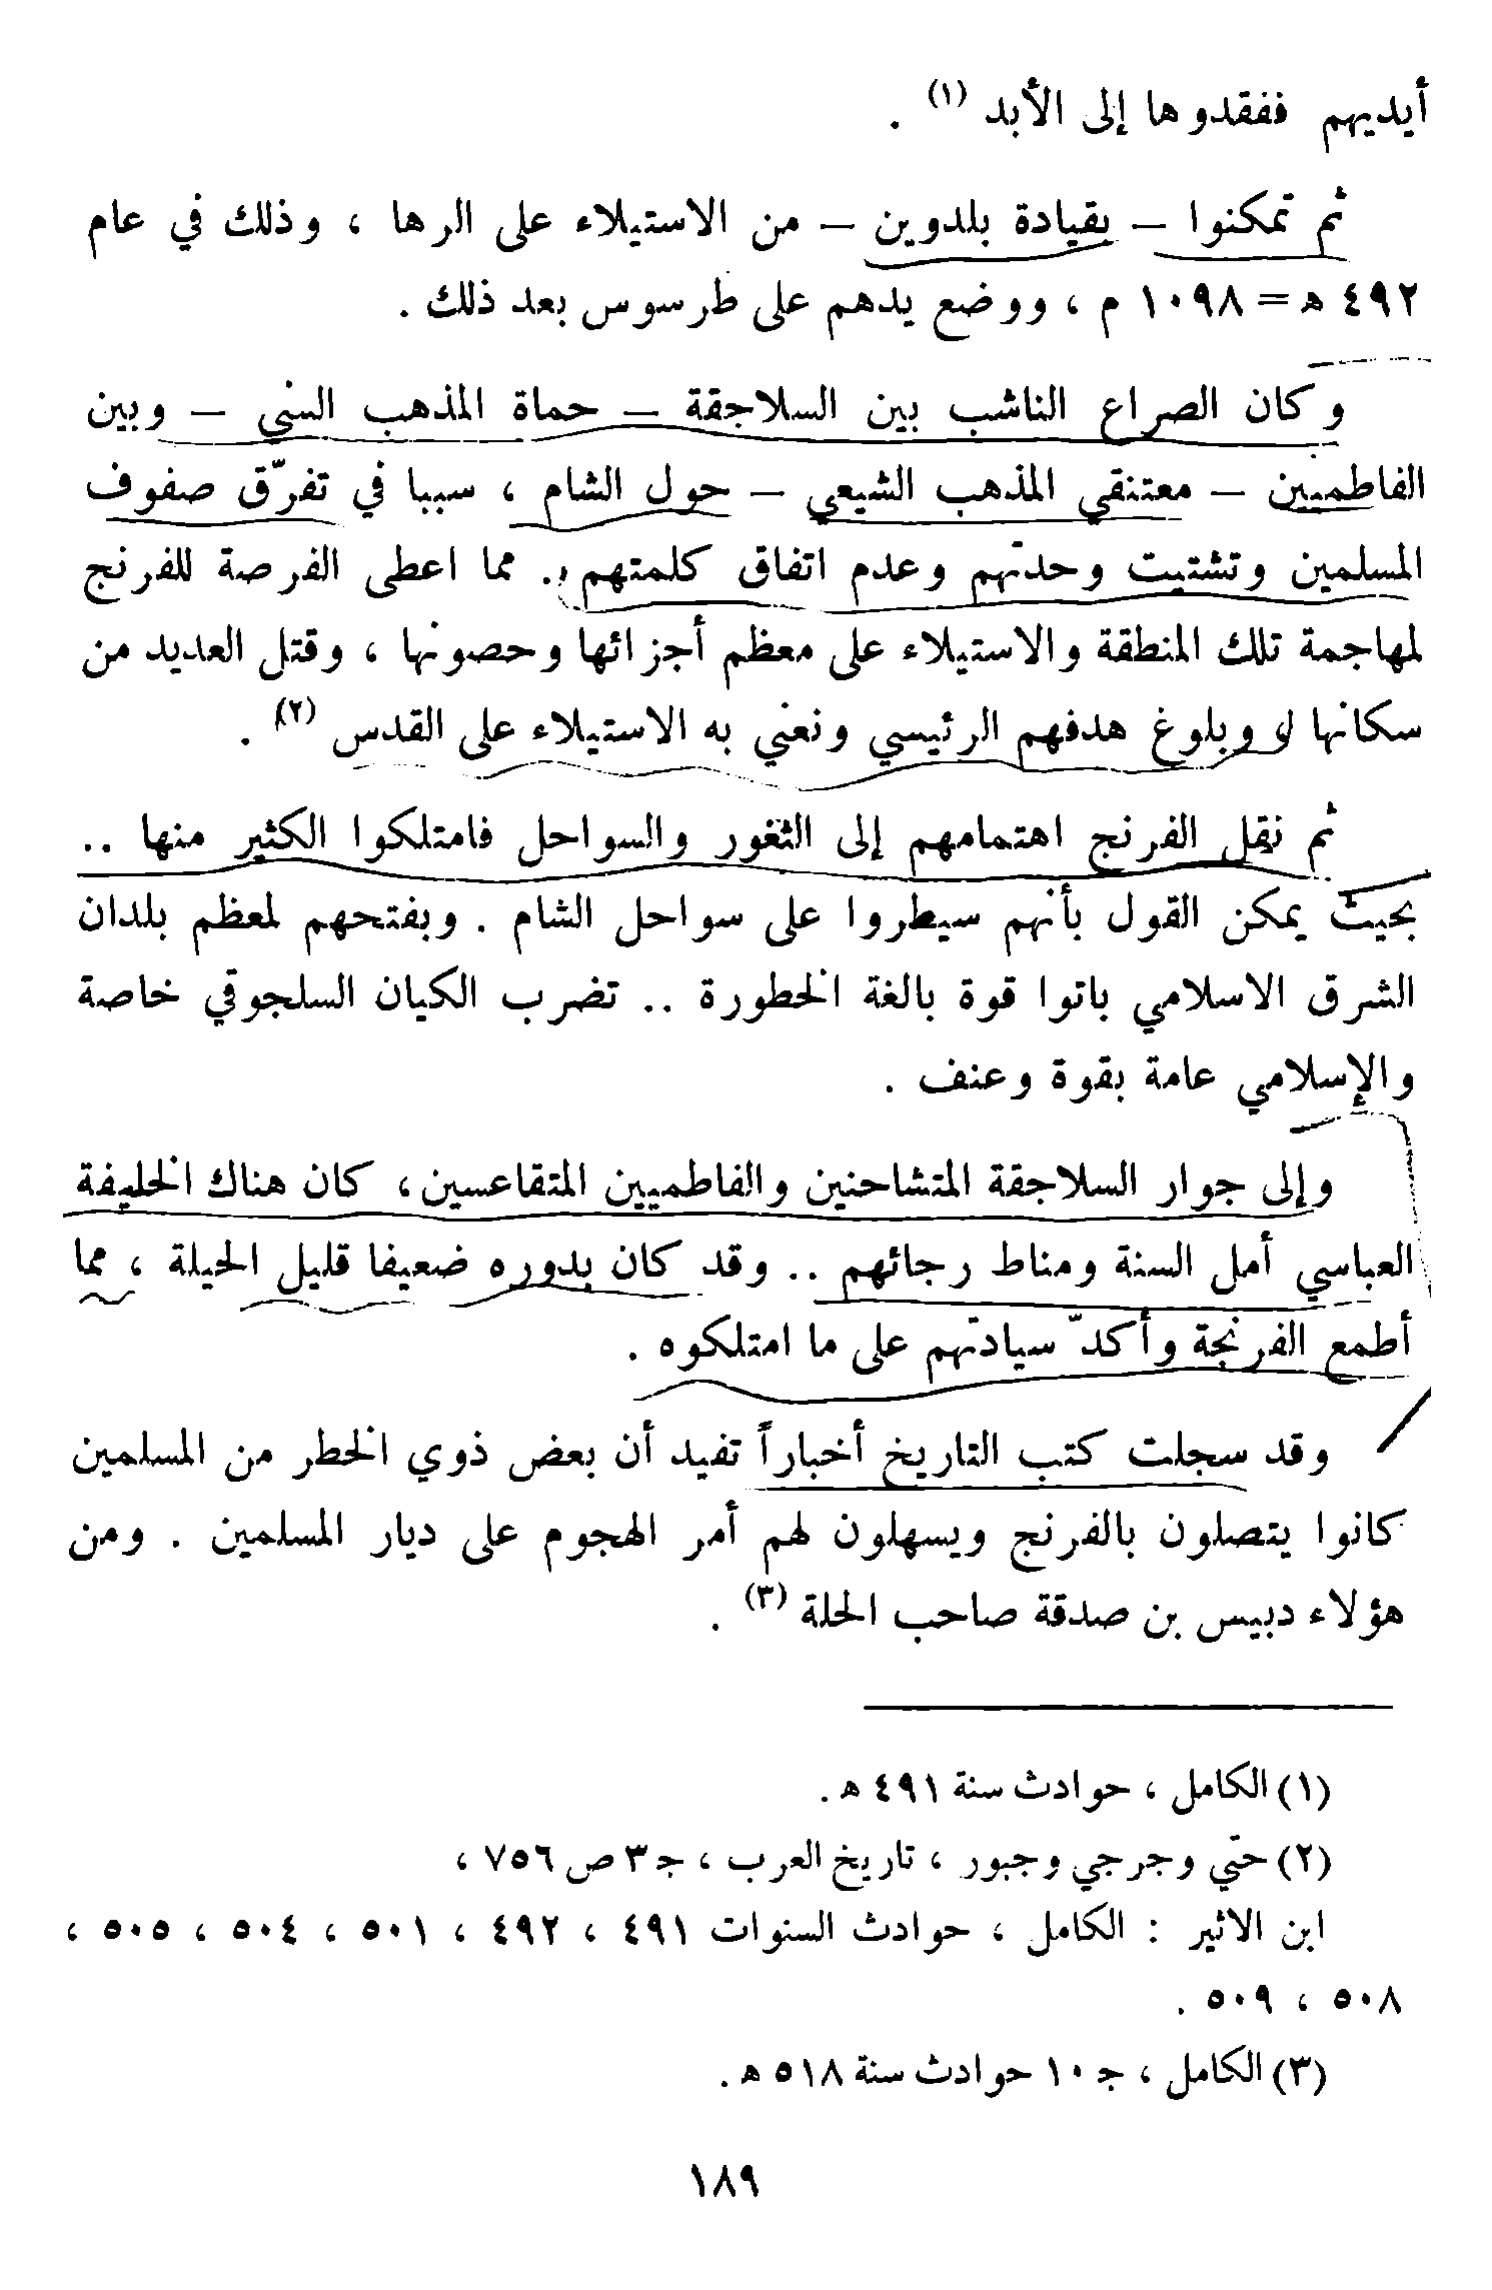 أيديهم ففقدوها إلى الأبد (١) .
ثم تمكنوا – بقيادة بلدوين – من الاستيلاء على الرها ، وذلك في عام
٤٩٢ هـ = ١٠٩٨ م ، ووضع يدهم على طرسوس بعد ذلك .
وكان الصراع الناشب بين السلاجقة – حماة المذهب السني – وبين
الفاطميين – معتنقي المذهب الشيعي – حول الشام ، سببا في تفرّق صفوف
المسلمين وتشتيت وحدتهم وعدم اتفاق كلمتهم .. مما اعطى الفرصة للفرنج
لمهاجمة تلك المنطقة والاستيلاء على معظم أجزائها وحصونها ، وقتل العديد من
سكانها وبلوغ هدفهم الرئيسي ونعني به الاستيلاء على القدس (٢) .
ثم نقل الفرنج اهتمامهم إلى الثغور والسواحل فامتلكوا الكثير منها ..
بحيث يمكن القول بأنهم سيطروا على سواحل الشام . وبفتحهم لمعظم بلدان
الشرق الاسلامي باتوا قوة بالغة الخطورة .. تضرب الكيان السلجوقي خاصة
والإسلامي عامة بقوة وعنف .
وإلى جوار السلاجقة المتشاحنين والفاطميين المتقاعسين ، كان هناك الخليفة
العباسي أمل السنة ومناط رجائهم .. وقد كان بدوره ضعيفا قليل الحيلة ، مما
أطمع الفرنجة وأكدّ سيادتهم على ما امتلكوه .
وقد سجلت كتب التاريخ أخباراً تفيد أن بعض ذوي الخطر من المسلمين
كانوا يتصلون بالفرنج ويسهلون لهم أمر الهجوم على ديار المسلمين . ومن
هؤلاء دبيس بن صدقة صاحب الحلة (٣) .
(١) الكامل ، حوادث سنة ٤٩١ هـ .
(٢) حتّي وجرجي وجبور ، تاريخ العرب ، جـ ٣ ص ٧٥٦ ،
ابن الاثير : الكامل ، حوادث السنوات ٤٩١ ، ٤٩٢ ، ٥٠١ ، ٥٠٤ ، ٥٠٥ ،
٥٠٨ ، ٥٠٩ .
(٣) الكامل ، جـ ١٠ حوادث سنة ٥١٨ هـ .
١٨٩